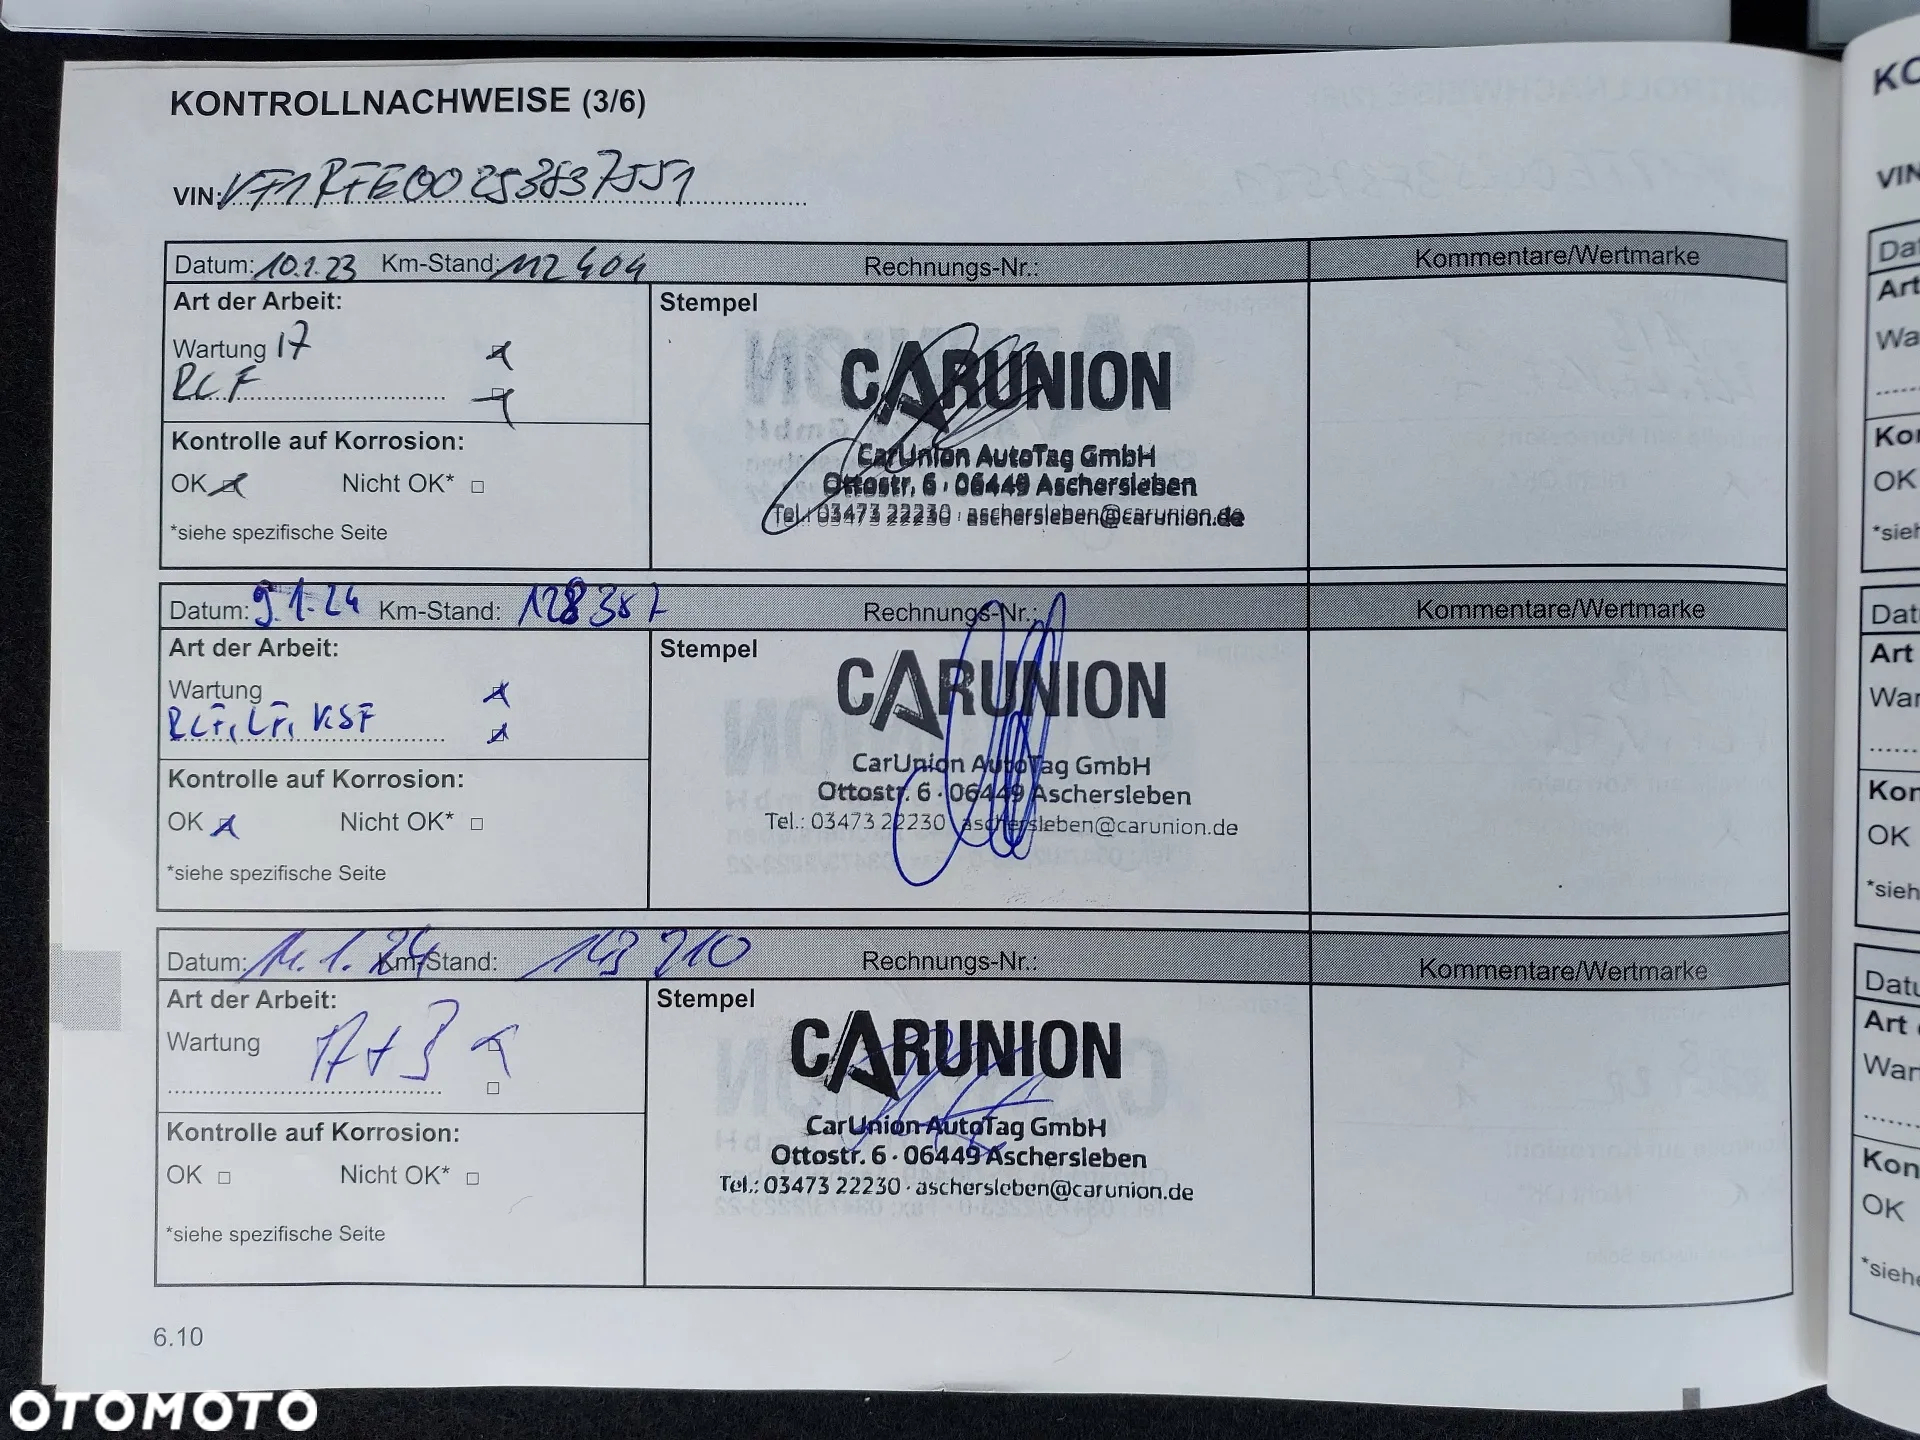 KONTROLLNACHWEISE (3/6)
VIN: VF1RFE00253837551
Datum: 10.1.23 Km-Stand: 112 404 Rechnungs-Nr.: Kommentare/Wertmarke
Art der Arbeit:
Wartung 17
RCF
Kontrolle auf Korrosion:
OK Nicht OK*
*siehe spezifische Seite
Stempel
CARUNION
CarUnion AutoTag GmbH
Ottostr. 6 · 06449 Aschersleben
Tel.: 03473 22230 · aschersleben@carunion.de
Datum: 9.1.24 Km-Stand: 128 387 Rechnungs-Nr.: Kommentare/Wertmarke
Art der Arbeit:
Wartung
RCF, LF, KSF
Kontrolle auf Korrosion:
OK Nicht OK*
*siehe spezifische Seite
Stempel
CARUNION
CarUnion AutoTag GmbH
Ottostr. 6 · 06449 Aschersleben
Tel.: 03473 22230 · aschersleben@carunion.de
Datum: 11.1.24 Km-Stand: 143 210 Rechnungs-Nr.: Kommentare/Wertmarke
Art der Arbeit:
Wartung
Kontrolle auf Korrosion:
OK Nicht OK*
*siehe spezifische Seite
Stempel
CARUNION
CarUnion AutoTag GmbH
Ottostr. 6 · 06449 Aschersleben
Tel.: 03473 22230 · aschersleben@carunion.de
6.10
KO
VIN
Dat
Art
Wa
Kor
OK
*sieh
Dat
Art
War
Kon
OK
*sieh
Datu
Art
War
Kon
OK
*siehe
OTOMOTO